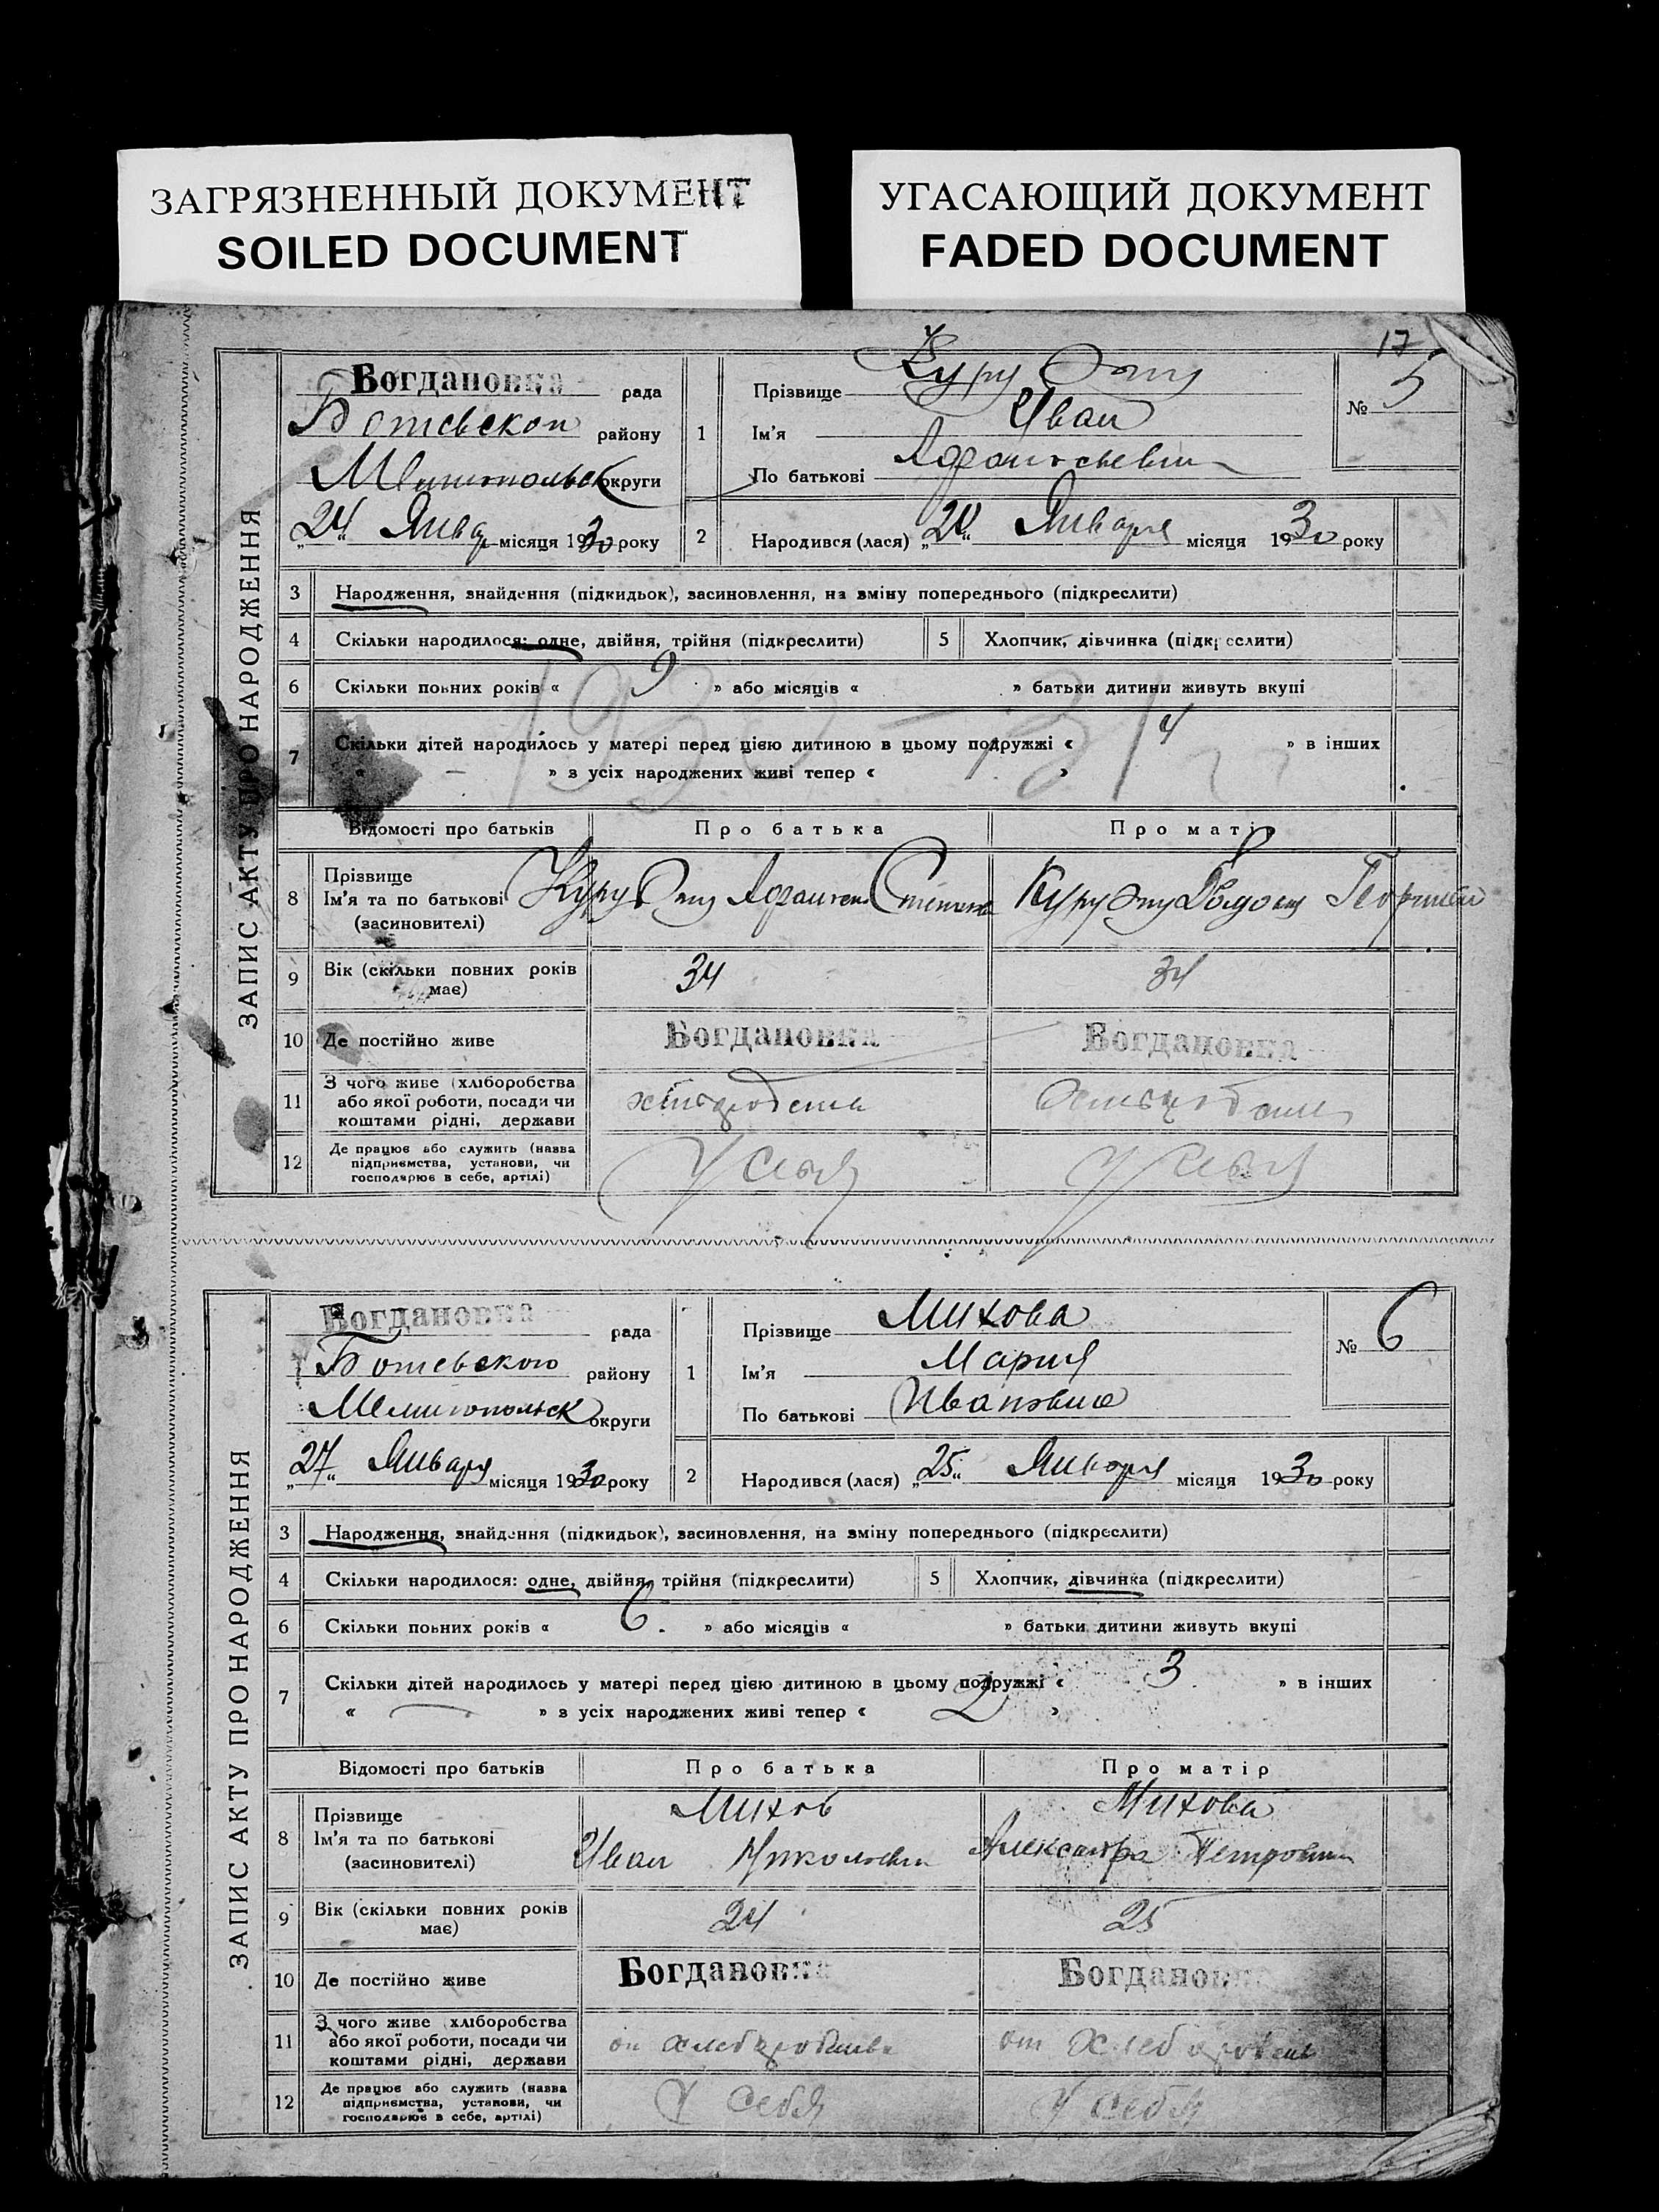 ЗАГРЯЗНЕННЫЙ ДОКУМЕНТ
SOILED DOCUMENT
УГАСАЮЩИЙ ДОКУМЕНТ
FADED DOCUMENT
17
ЗАПИС АКТУ ПРО НАРОДЖЕННЯ
Богдановка рада
района
округи
„24“ Янва місяця 1930 року
1 Прізвище Куру
Ім'я Иван
По батькові
№ 5
2 Народився (лася) „20“ Января місяця 1930 року
3 Народження, знайдення (підкидьок), засиновлення, на зміну попереднього (підкреслити)
4 Скільки народилося: одне, двійня, трійня (підкреслити) 5 Хлопчик, дівчинка (підкреслити)
6 Скільки повних років « 9 » або місяців « » батьки дитини живуть вкупі
1930-31
7 Скільки дітей народилось у матері перед цією дитиною в цьому подружжі « 4 » в інших
« — » з усіх народжених живі тепер « »
Відомості про батьків Про батька Про матір
8 Прізвище
Ім'я та по батькові Куру Куру
(засиновителі)
9 Вік (скільки повних років має) 34 34
10 Де постійно живе Богдановка Богдановка
11 З чого живе (хліборобства
або якої роботи, посади чи
коштами рідні, держави
12 Де працює або служить (назва
підприємства, установи, чи У себя У себя
господарює в себе, артілі)
ЗАПИС АКТУ ПРО НАРОДЖЕННЯ
Богдановка рада
Ботевского району
Мелитопольск округи
„27“ Января місяця 1930 року
1 Прізвище Михова
Ім'я Мария
По батькові Ивановна
№ 6
2 Народився (лася) „25“ Января місяця 1930 року
3 Народження, знайдення (підкидьок), засиновлення, на зміну попереднього (підкреслити)
4 Скільки народилося: одне, двійня, трійня (підкреслити) 5 Хлопчик, дівчинка (підкреслити)
6 Скільки повних років « 6. » або місяців « » батьки дитини живуть вкупі
7 Скільки дітей народилось у матері перед цією дитиною в цьому подружжі « 3 » в інших
« — » з усіх народжених живі тепер « 2 »
Відомості про батьків Про батька Про матір
8 Прізвище Михов Михова
Ім'я та по батькові Иван Александра
(засиновителі)
9 Вік (скільки повних років має) 24 25
10 Де постійно живе Богдановка Богдановка
11 З чого живе (хліборобства
або якої роботи, посади чи
коштами рідні, держави
12 Де працює або служить (назва
підприємства, установи, чи У себя У себя
господарює в себе, артілі)